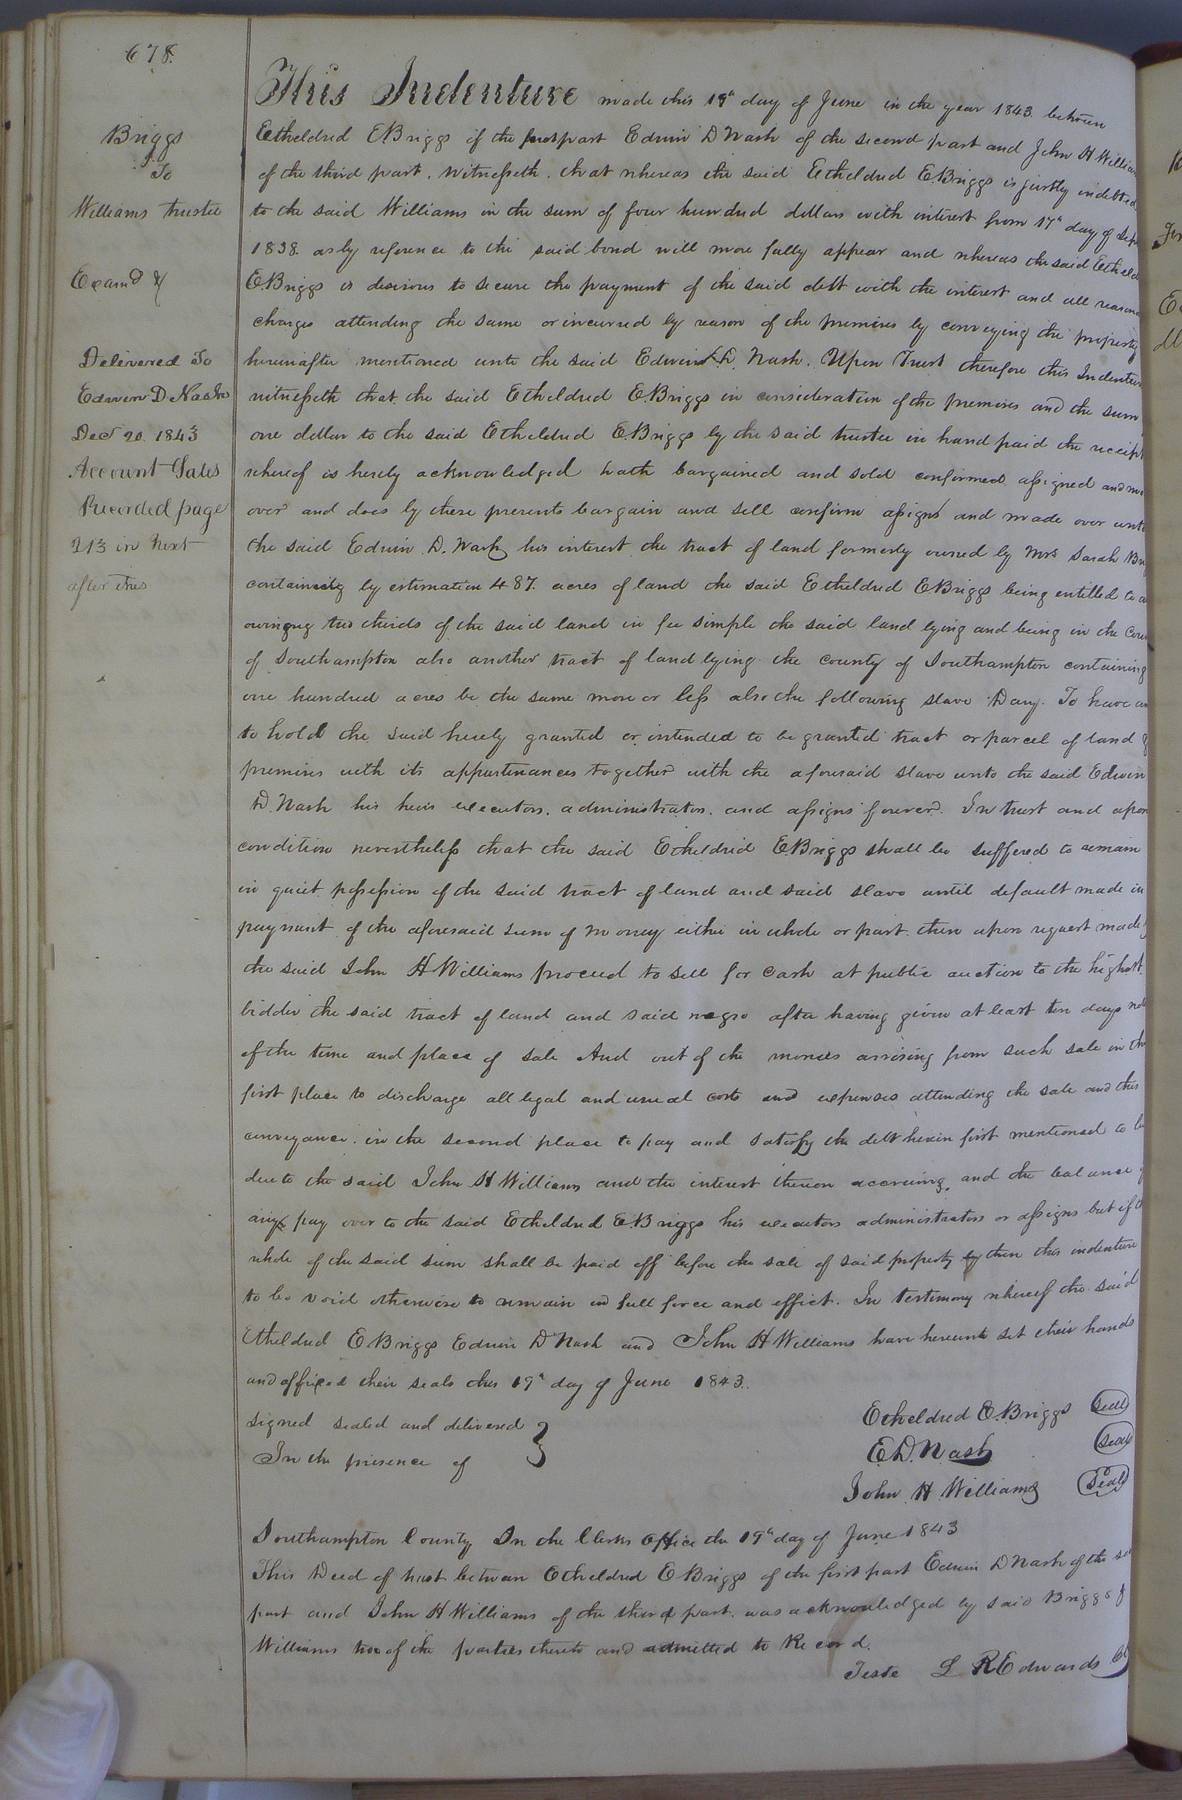 678.
Briggs
To
Williams trustee
Examd &
Delivered To
Edwin D Nash
Decr 20 1843
Account Sales
Recorded page
213 in next
after this
This Indenture made this 19th day of June in the year 1843. between
Etheldred E Briggs of the first part Edwin D Nash of the second part and John H William
of the third part. Witnesseth. that whereas the said Etheldred E. Briggs is justly indebted
to the said Williams in the sum of four hundred dollars with interest from 17th day of Sept
1838. as by reference to the said bond will more fully appear and whereas the said Etheld
E. Briggs is desirous to secure the payment of the said debt with the interest and all reason
charges attending the same or incurred by reason of the premises by conveying the property
hereinafter mentioned unto the said Edwin D. Nash. Upon Trust therefore this Indenture
witnesseth that the said Etheldred E. Briggs in consideration of the premises and the sum
one dollar to the said Etheldred E. Briggs by the said trustee in hand paid the receipt
whereof is hereby acknowledged hath bargained and sold confirmed assigned and ma
over and does by these presents bargain and sell confirm assign and made over unto
the said Edwin D. Nash his interest the tract of land formerly owned by Mrs Sarah Bri
containing by estimation 487. acres of land the said Etheldred E Briggs being entitled to a
owing two thirds of the said land in fee simple the said land lying and being in the Coun
of Southampton also another tract of land lying the county of Southampton containing
one hundred acres be the same more or less also the following slave Davy. To have an
to hold the said hereby granted or intended to be granted tract or parcel of land &
premises with its appurtinances together with the aforesaid slave unto the said Edwin
D Nash his heirs executors. administrators. and assigns forever. In trust and upon
condition nevertheless that the said Etheldred E Briggs shall be suffered to remain
in quiet possession of the said tract of land and said slave until default made in
payment of the aforesaid sum of money either in whole or part. then upon request made
the said John H Williams proceed to sell for cash at public auction to the highest
bidder the said tract of land and said negro after having given at least ten days not
of the time and place of sale And out of the monies arrising from such sale in the
first place to discharge all legal and usual costs and expenses attending the sale and this
conveyance. in the second place to pay and satisfy the debt herein first mentioned to be
due to the said John H Williams and the interest thereon accruing. and the balance
any pay over to the said Etheldred E Briggs his executors administrators or assigns but if th
whole of the said sum shall be paid off before the sale of said property then this indenture
to be void otherwise to remain in full force and effect. In testimony whereof the said
Etheldred E Briggs Edwin D Nash and John H Williams have hereunto set their hands
and affixed their seals this 19th day of June 1843.
signed sealed and delivered
In the presence of
Etheldred E. Briggs Seal
E. D. Nash Seal
John H Williams Seal
Southampton County In the Clerks Office the 19th day of June 1843
This Deed of trust between Etheldred E Briggs of the first part Edwin D Nash of the se
part and John H Williams of the third part. was acknowledged by said Briggs &
Williams two of the parties thereto and admitted to Record.
Teste L R Edwards Cl